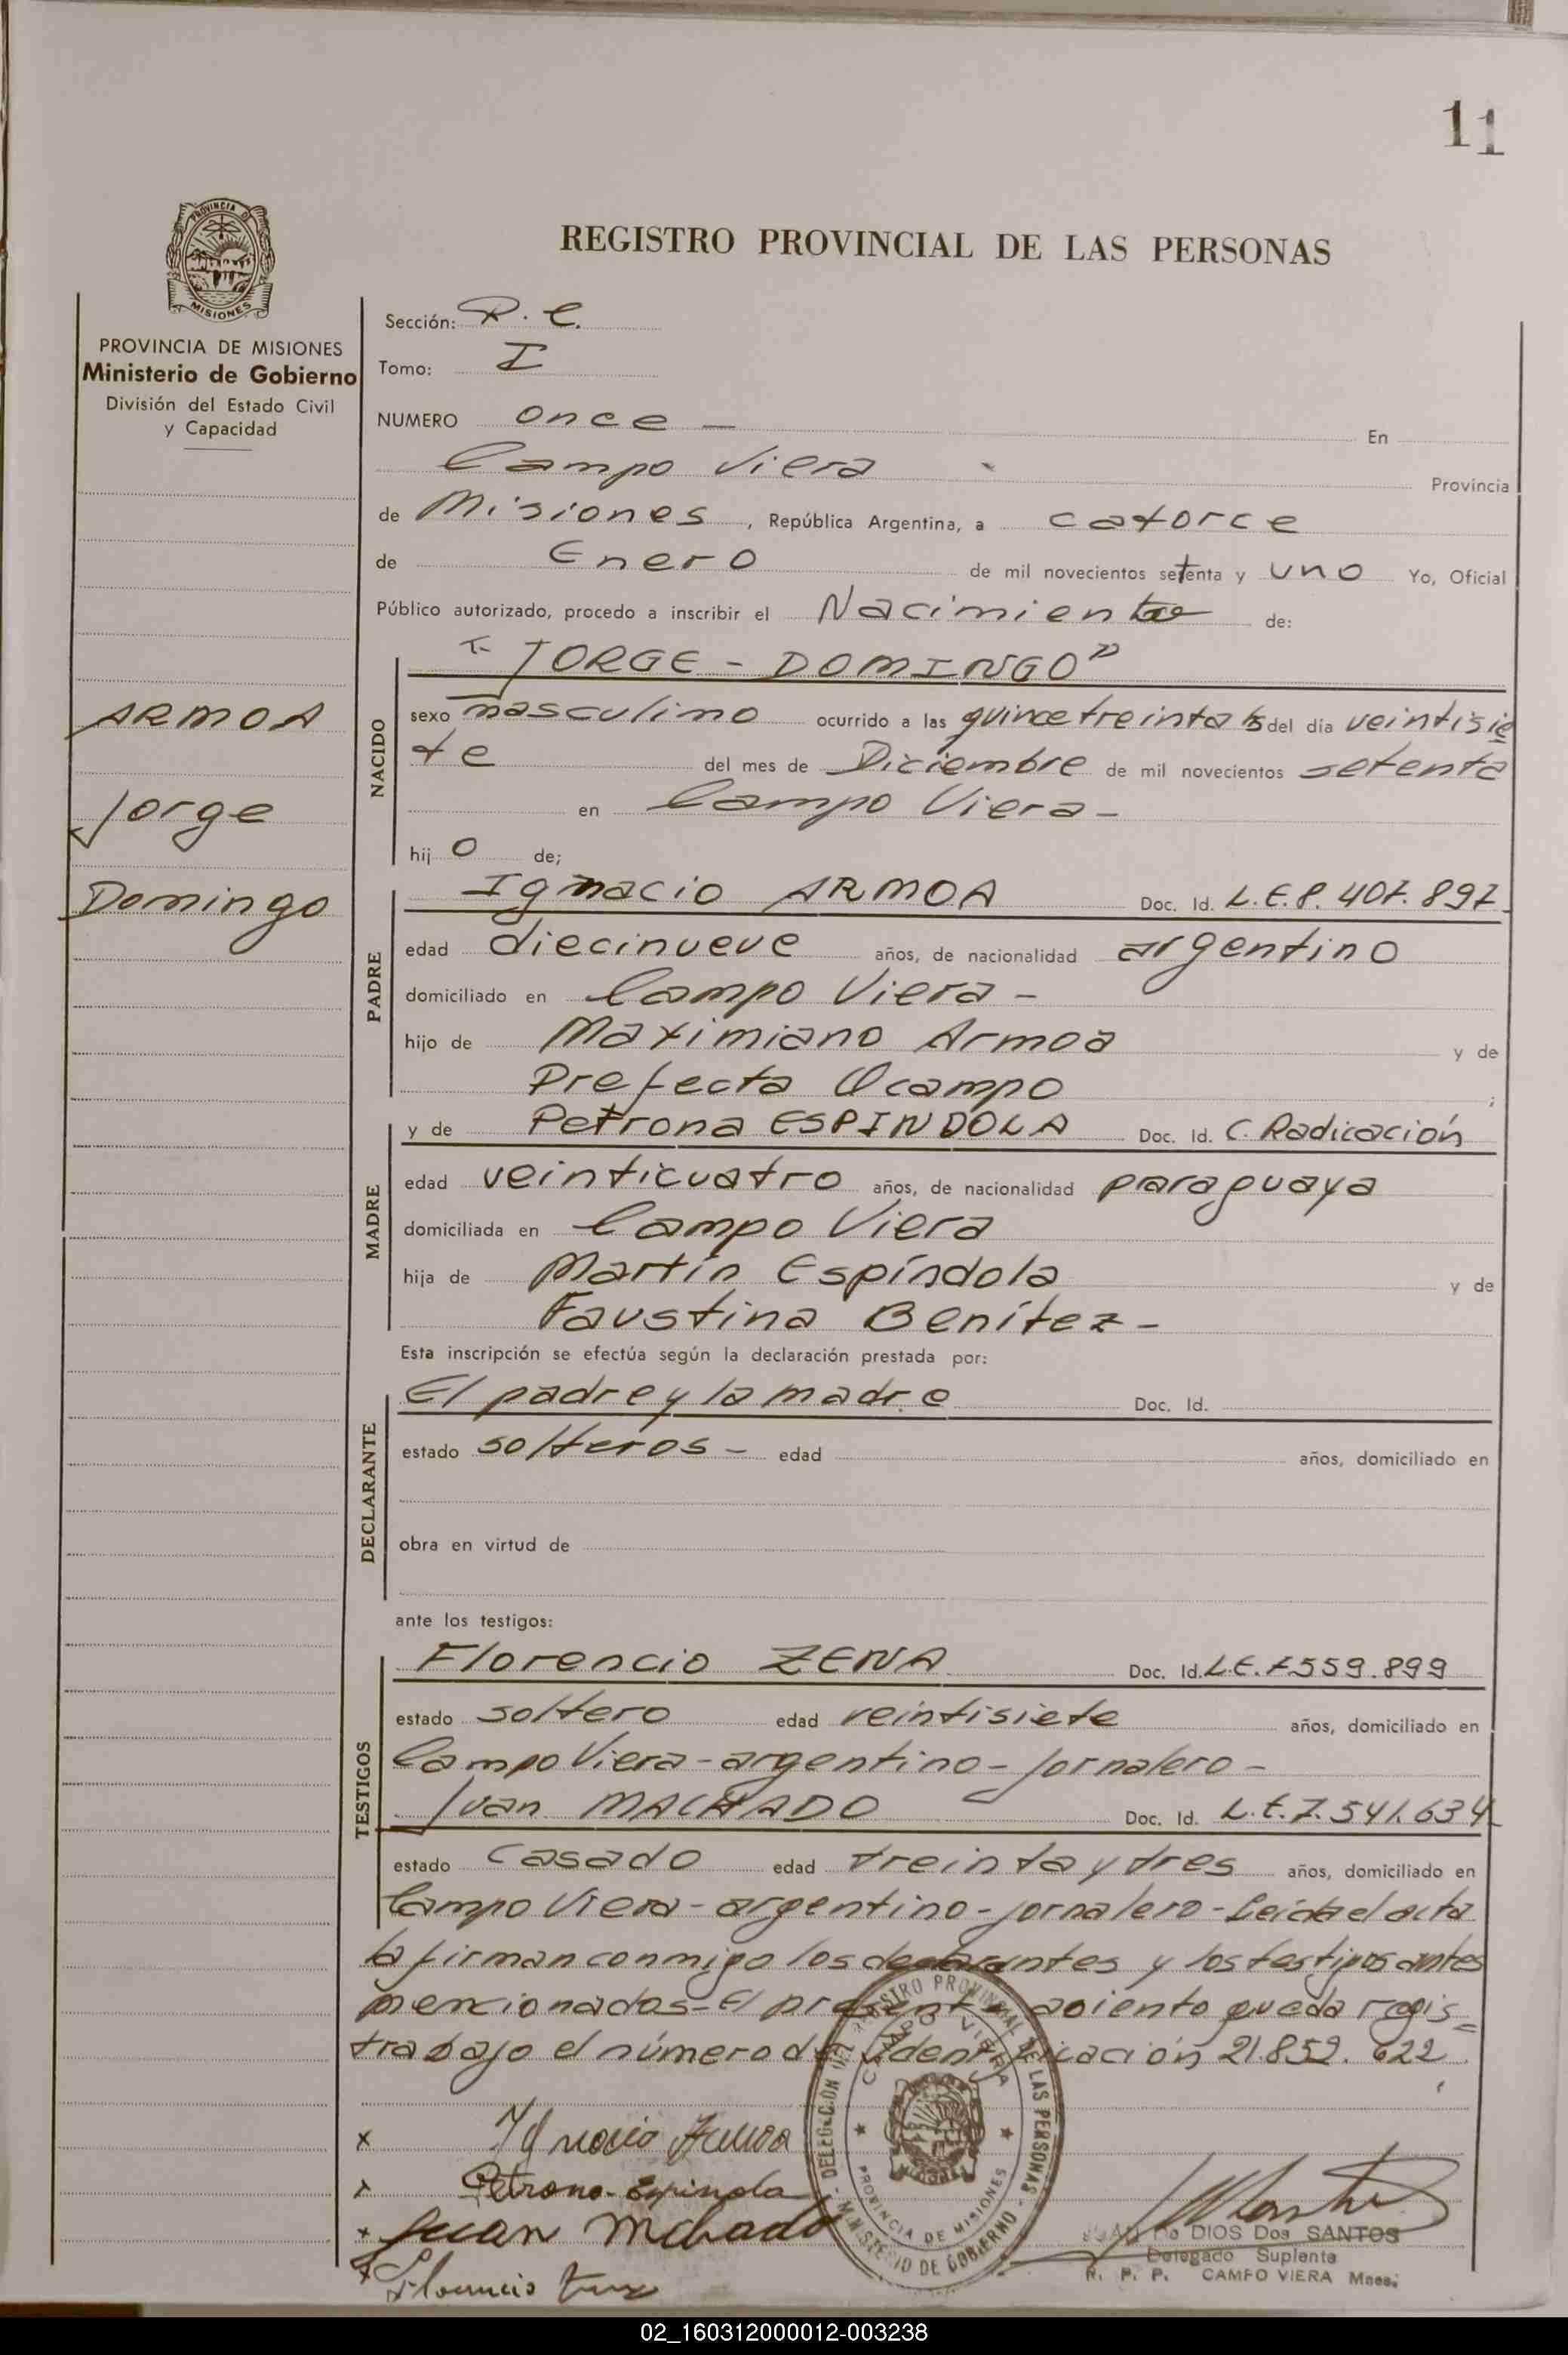 11
PROVINCIA DE
MISIONES
REGISTRO PROVINCIAL DE LAS PERSONAS
PROVINCIA DE MISIONES
Ministerio de Gobierno
División del Estado Civil
y Capacidad
ARMOA
Jorge
Domingo
Sección: R. C.
Tomo: I
NUMERO once — En
Campo Viera Provincia
de Misiones, República Argentina, a catorce
de Enero de mil novecientos setenta y uno Yo, Oficial
Público autorizado, procedo a inscribir el Nacimiento de:
"JORGE - DOMINGO"
NACIDO
sexo masculino ocurrido a las quince treinta hs del día veintisie
te del mes de Diciembre de mil novecientos setenta
en Campo Viera -
hij o de;
PADRE
Ignacio ARMOA Doc. Id. L.E.8.407.897
edad diecinueve años, de nacionalidad argentino
domiciliado en Campo Viera -
hijo de Maximiano Armoa y de
Prefecta Ocampo ;
MADRE
y de Petrona ESPINDOLA Doc. Id. C. Radicación
edad veinticuatro años, de nacionalidad paraguaya
domiciliada en Campo Viera
hija de Martín Espíndola y de
Faustina Benítez -
Esta inscripción se efectúa según la declaración prestada por:
DECLARANTE
El padre y la madre Doc. Id.
estado solteros - edad años, domiciliado en
obra en virtud de
ante los testigos:
TESTIGOS
Florencio ZENA Doc. Id. L.E.7.559.899
estado soltero edad veintisiete años, domiciliado en
Campo Viera - argentino - jornalero -
Juan MACHADO Doc. Id. L.E.7.541.634
estado casado edad treinta y tres años, domiciliado en
Campo Viera - argentino - jornalero - Leída el acta
la firman conmigo los declarantes y los testigos antes
mencionados - El presente asiento queda regis=
trabajo el número de identificación 21.859.622
x Ignacio Armoa
x Petrona Espinola
x Juan Machado
x Florencio
DELEGACION DEL REGISTRO PROVINCIAL DE LAS PERSONAS - MINISTERIO DE GOBIERNO -
CAMPO VIERA
PROVINCIA DE MISIONES
JUAN De DIOS Dos SANTOS
Delegado Suplente
R. P. P. CAMPO VIERA Mnes.
02_160312000012-003238